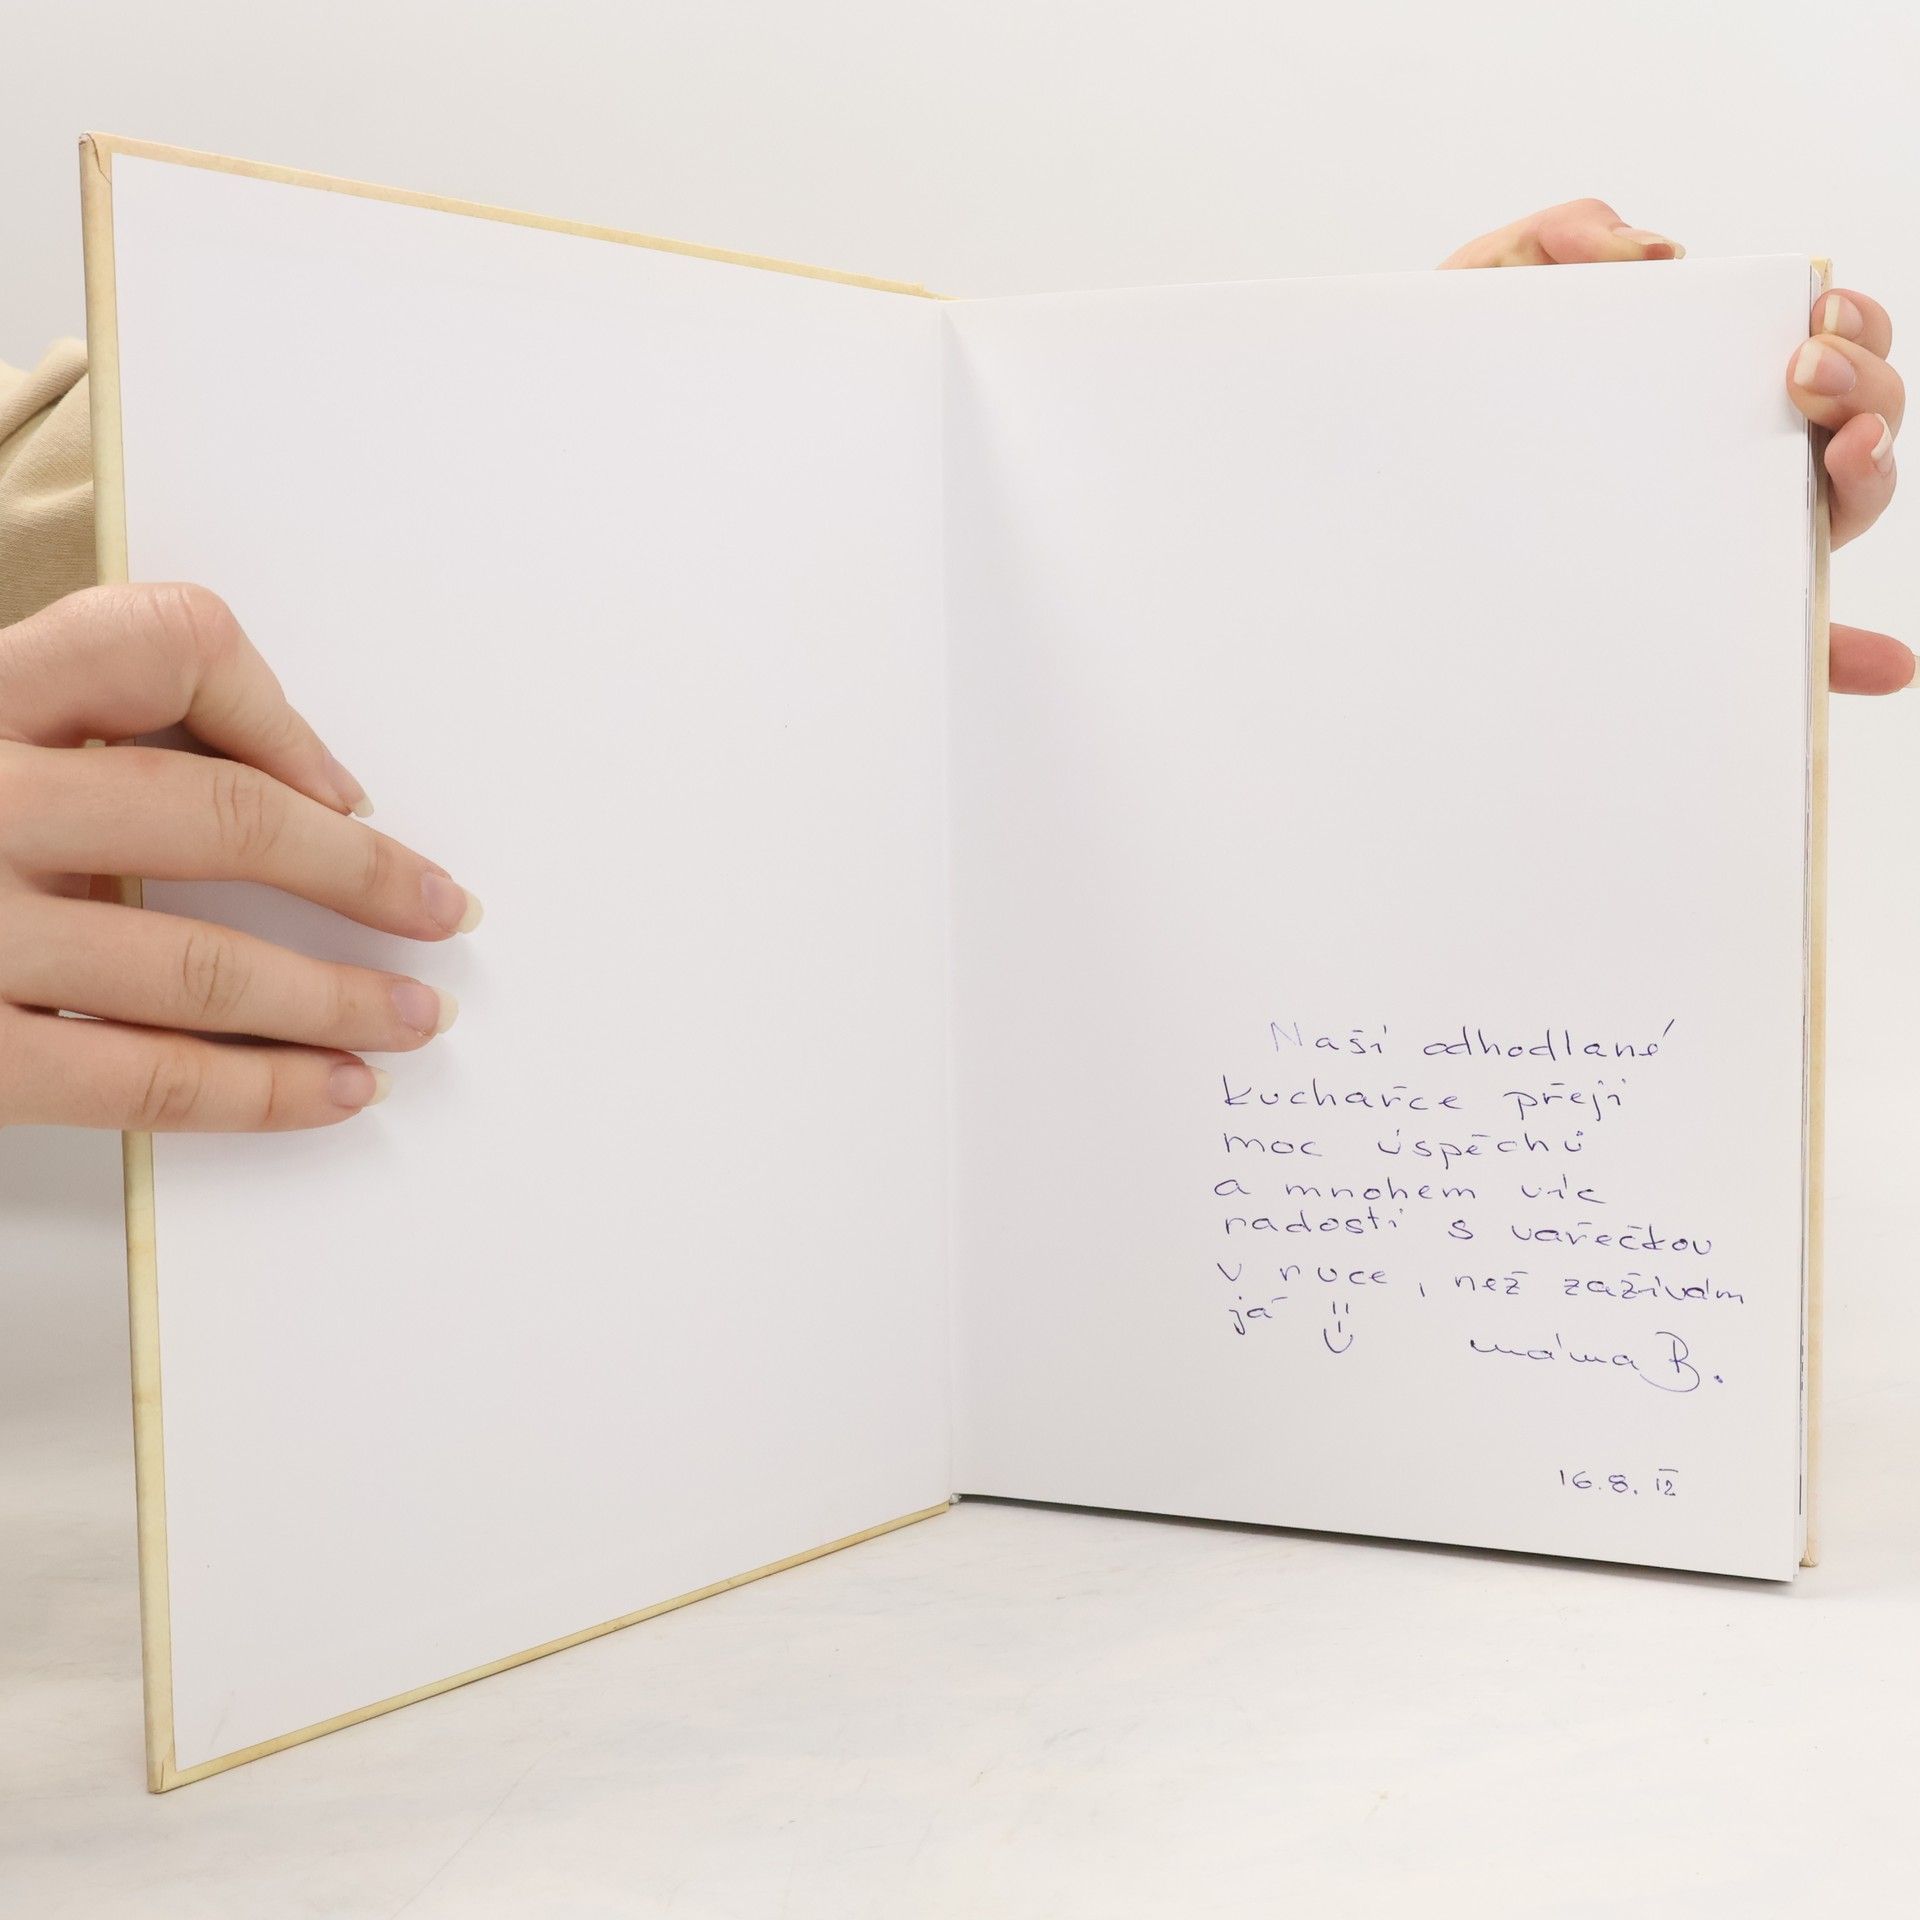 Naší odhodlané
kuchařce přeji
moc úspěchů
a mnohem víc
radosti s vařečkou
v ruce, než zažívám
já
máma B.
16.8. 12